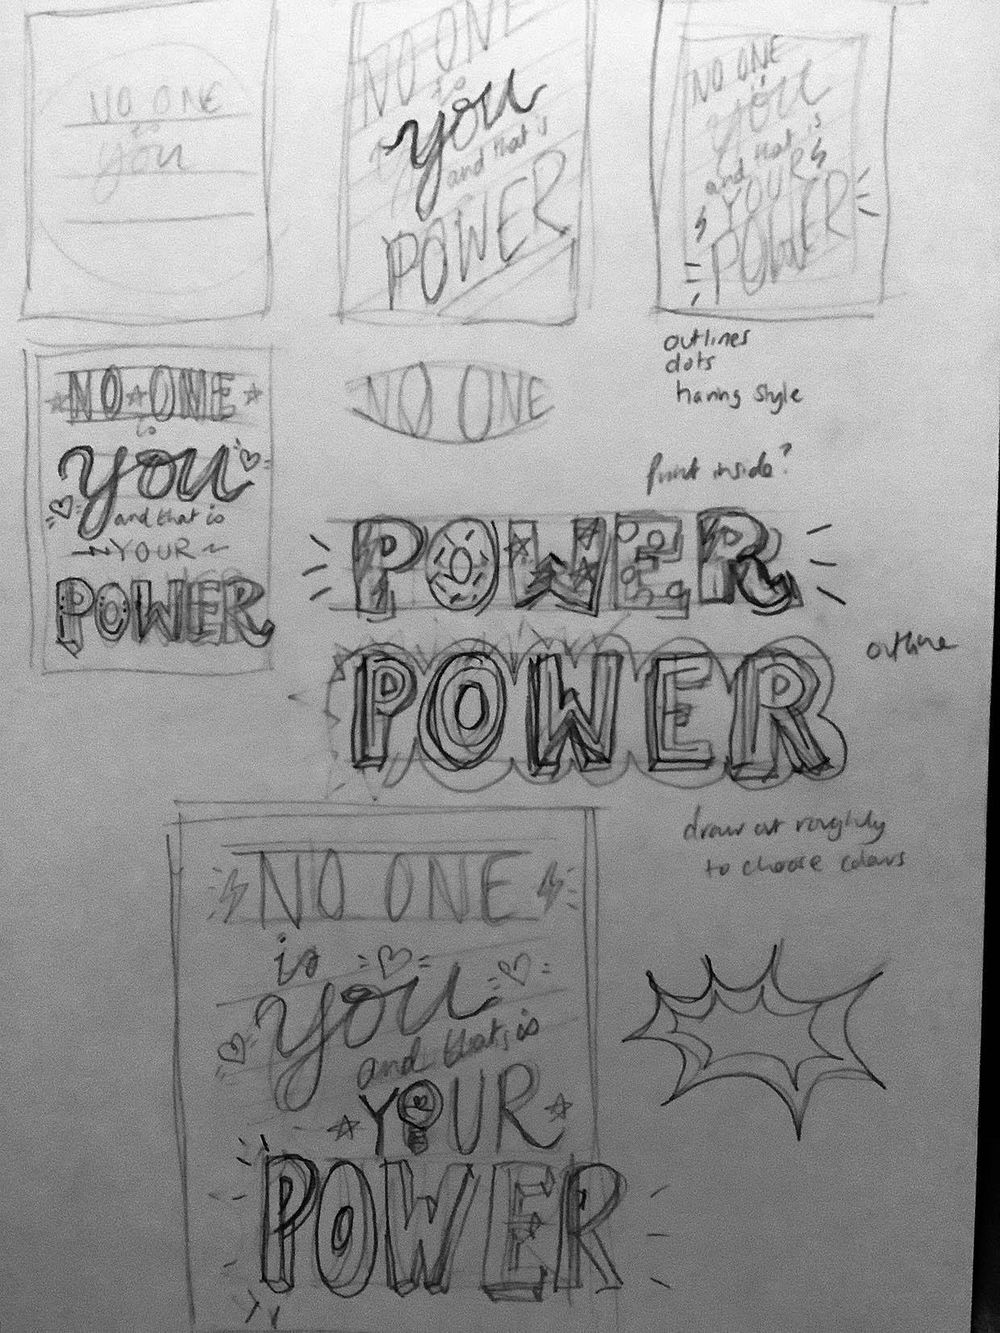 NO ONE
is
you
NO ONE
is
you
and that is
POWER
NO ONE
is
you
and that is
YOUR
POWER
outlines
dots
haring style
NO ONE
is
you
and that is
YOUR
POWER
NO ONE
inside?
POWER
POWER
outline
draw out roughly
to choose colours
NO ONE
is
you
and that is
YOUR
POWER